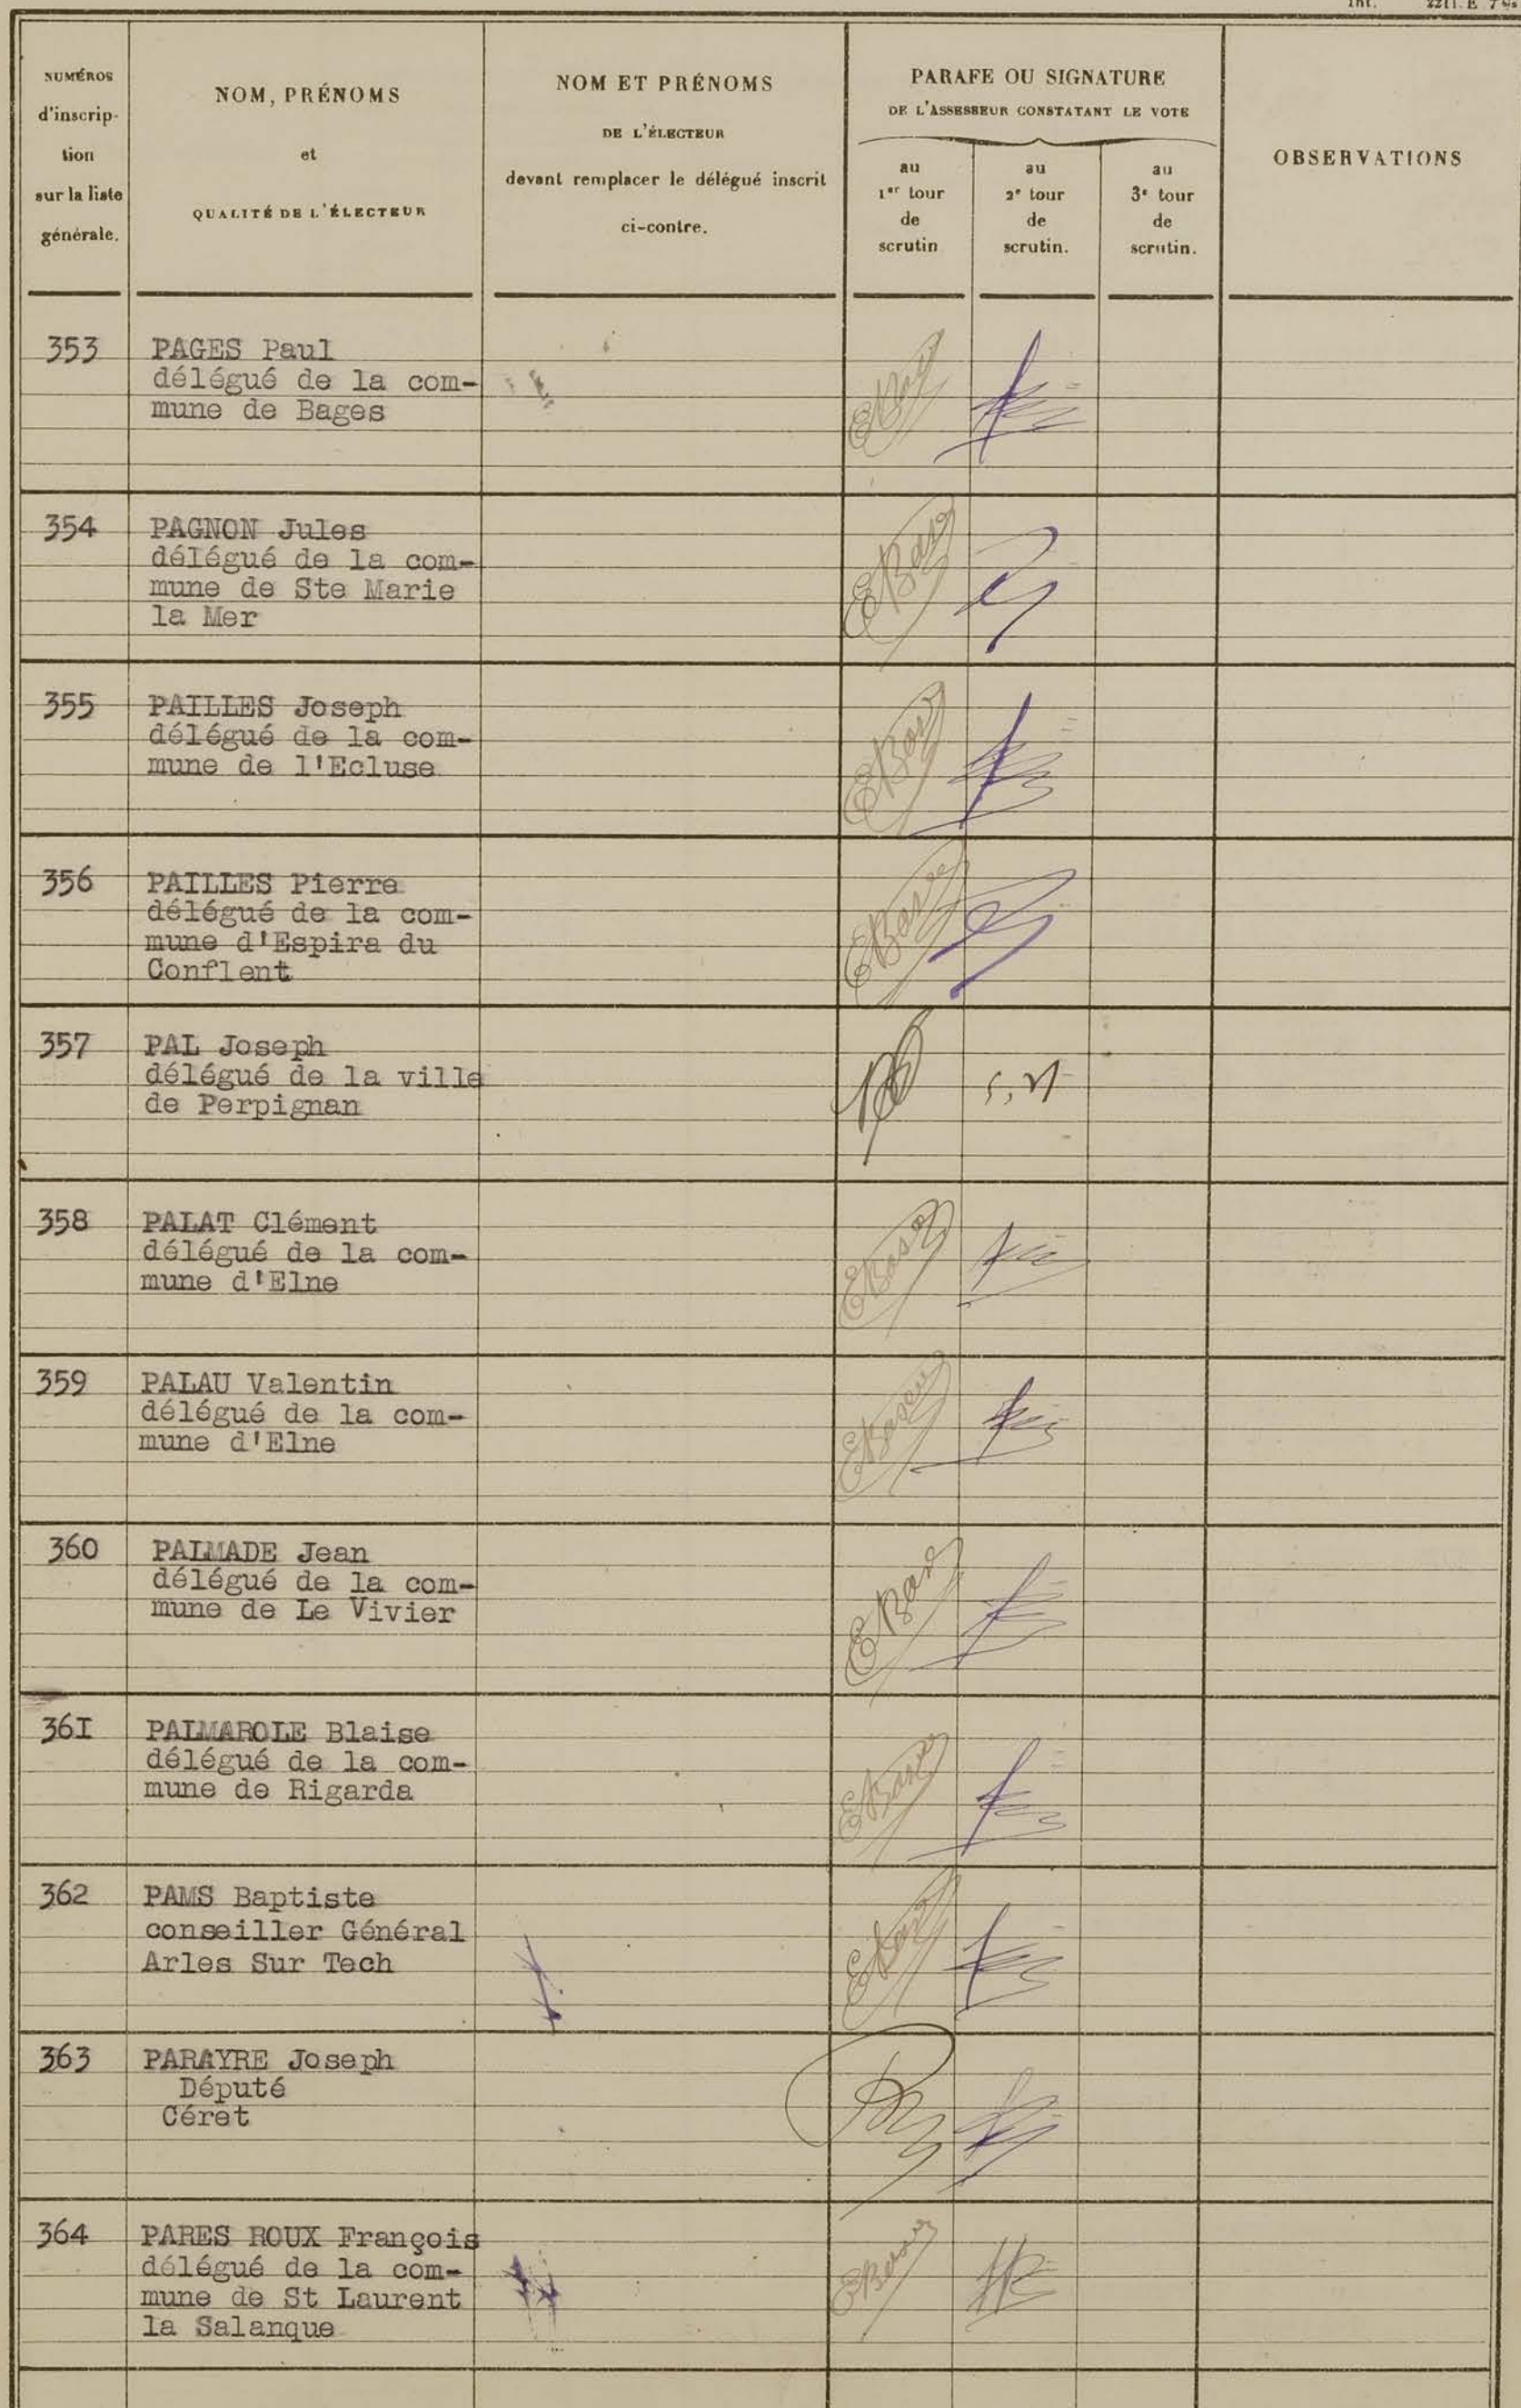 Int. 2211. E. 7 bis
NUMÉROS
d'inscrip-
tion
sur la liste
générale.
NOM, PRÉNOMS
et
QUALITÉ DE L'ÉLECTEUR
NOM ET PRÉNOMS
DE L'ÉLECTEUR
devant remplacer le délégué inscrit
ci-contre.
PARAFE OU SIGNATURE
DE L'ASSESSEUR CONSTATANT LE VOTE
au
1er tour
de
scrutin
au
2e tour
de
scrutin.
au
3e tour
de
scrutin.
OBSERVATIONS
353 PAGES Paul
délégué de la com-
mune de Bages
354 PAGNON Jules
délégué de la com-
mune de Ste Marie
la Mer
355 PAILLES Joseph
délégué de la com-
mune de l'Ecluse
356 PAILLES Pierre
délégué de la com-
mune d'Espira du
Conflent
357 PAL Joseph
délégué de la ville
de Perpignan
358 PALAT Clément
délégué de la com-
mune d'Elne
359 PALAU Valentin
délégué de la com-
mune d'Elne
360 PALMADE Jean
délégué de la com-
mune de Le Vivier
36I PALMAROLE Blaise
délégué de la com-
mune de Rigarda
362 PAMS Baptiste
conseiller Général
Arles Sur Tech
363 PARAYRE Joseph
Député
Céret
364 PARES ROUX François
délégué de la com-
mune de St Laurent
la Salanque